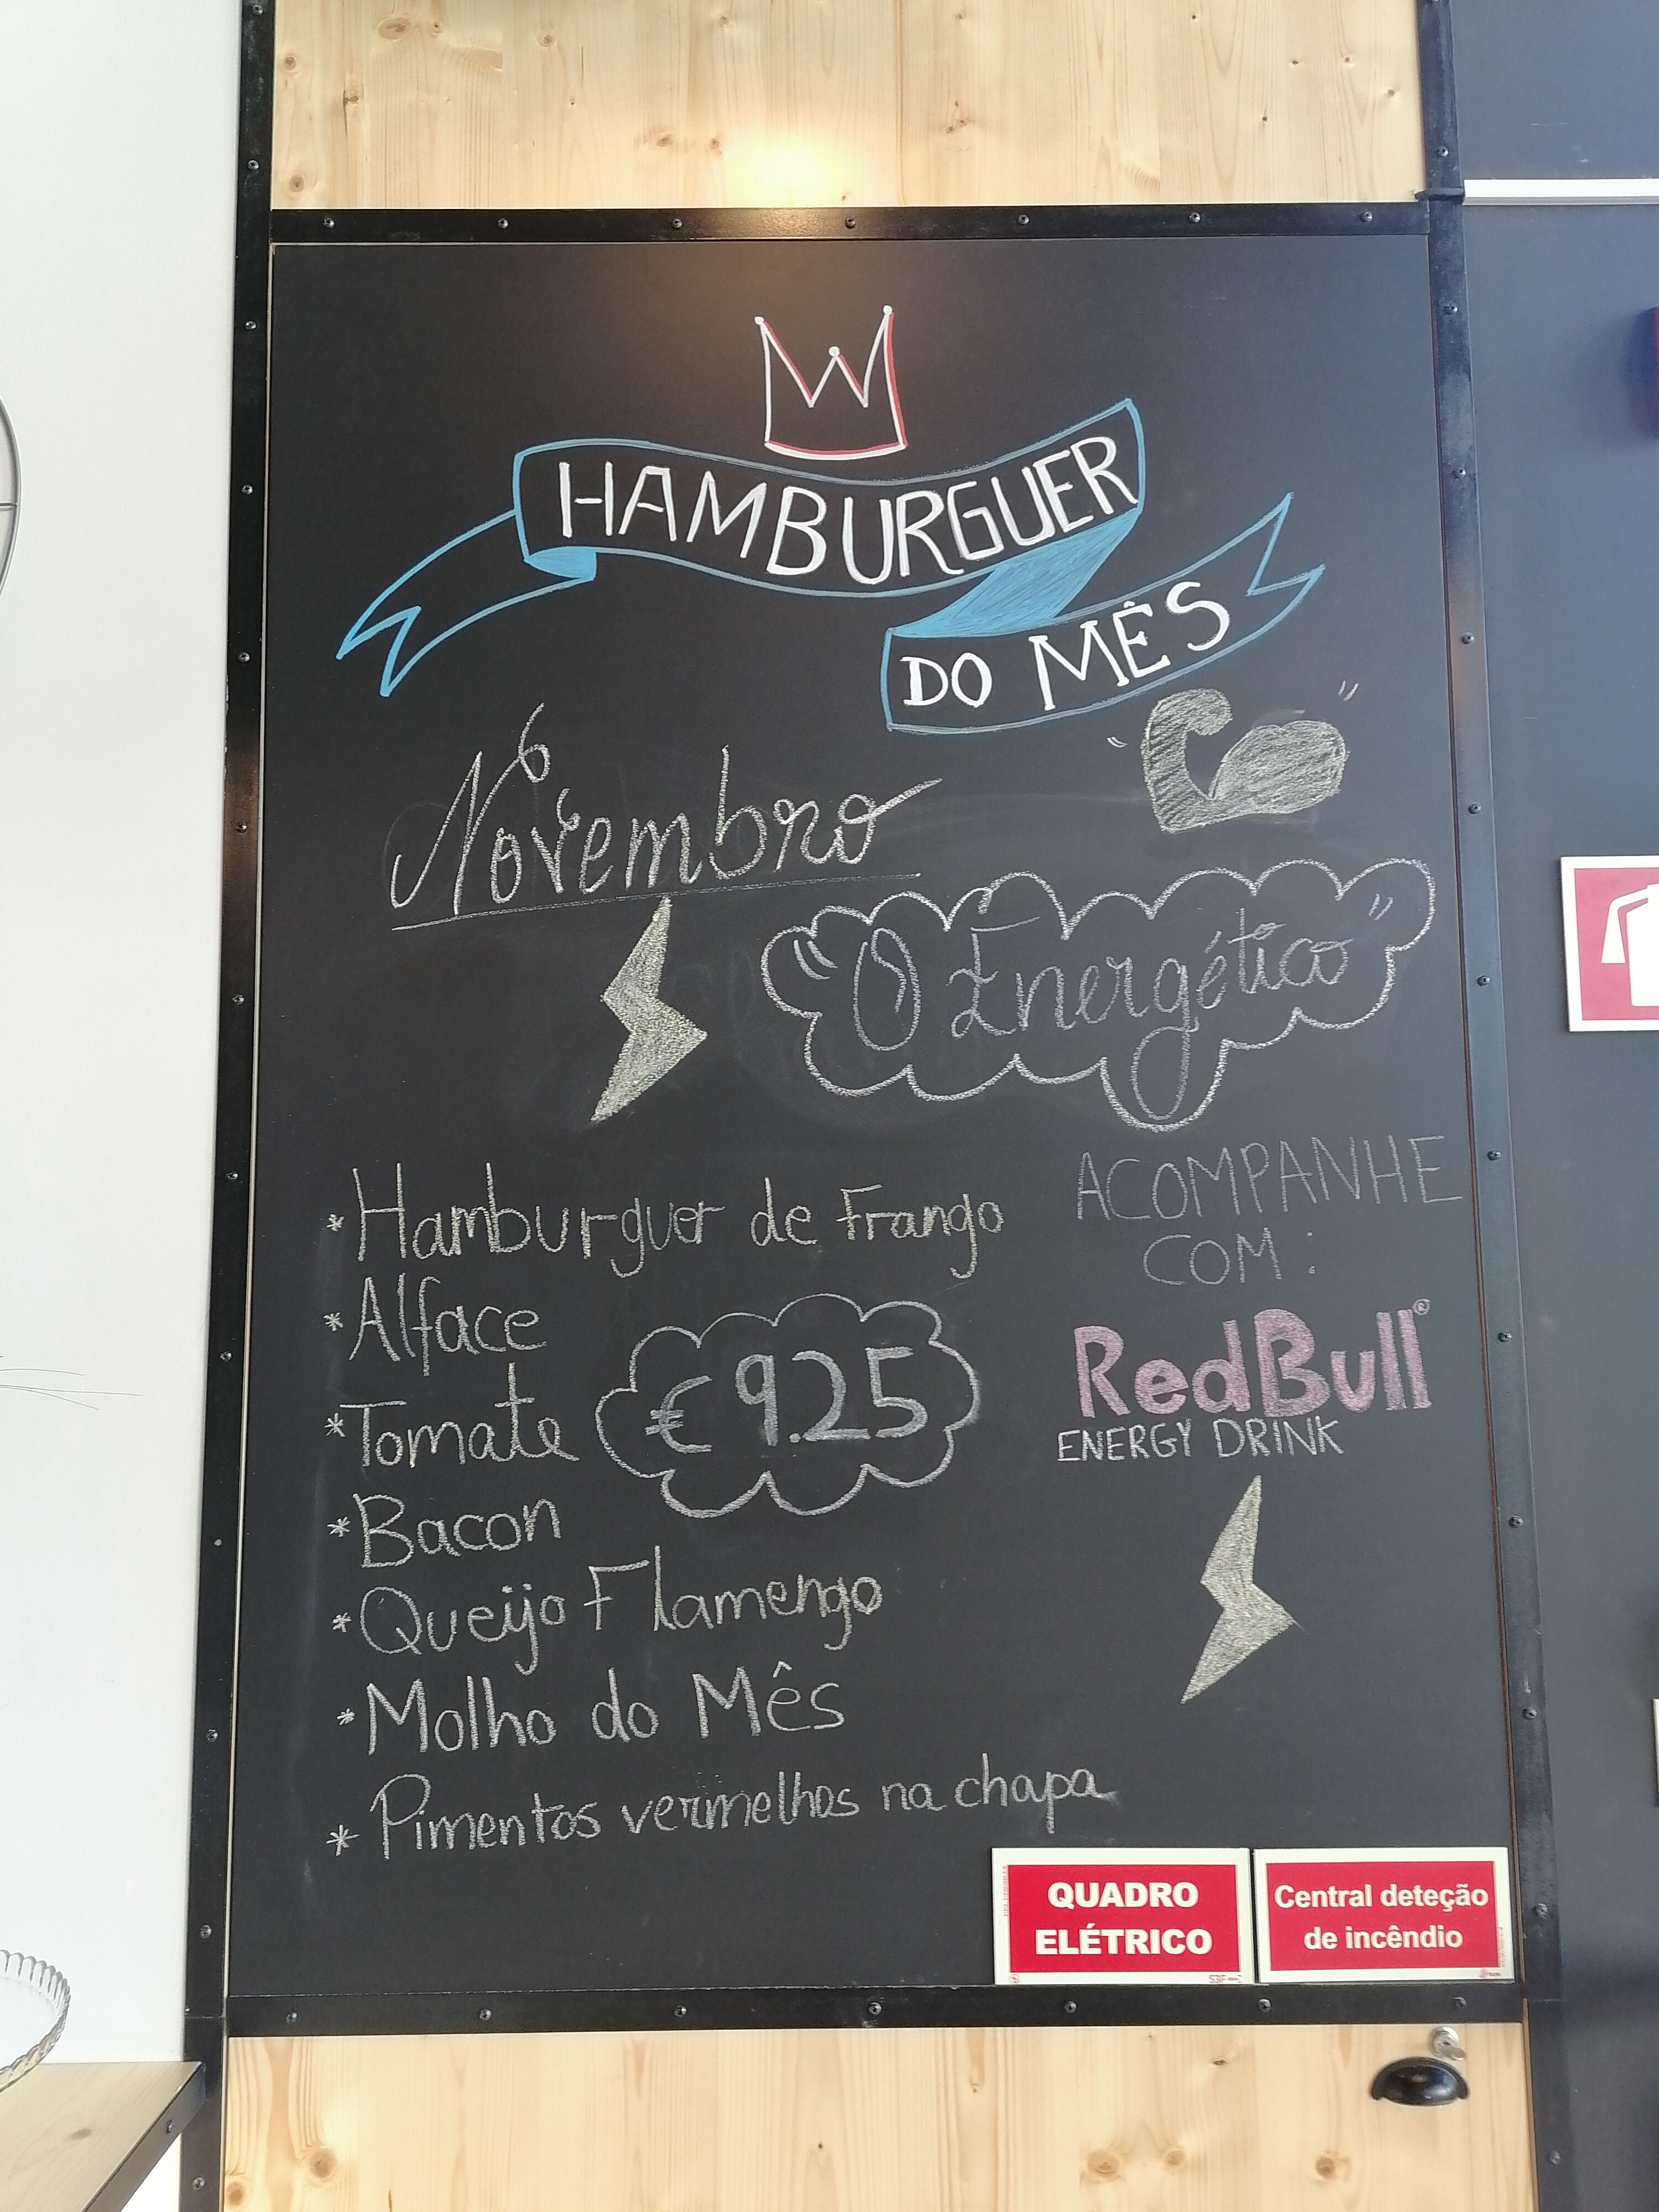 HAMBURGUER
DO MÊS
Novembro
"O Energético"
* Hamburguer de Frango
* Alface
* Tomate
* Bacon
* Queijo Flamengo
* Molho do Mês
* Pimentos vermelhos na chapa
€ 9.25
ACOMPANHE
COM:
RedBull®
ENERGY DRINK
QUADRO
ELÉTRICO
Central deteção
de incêndio